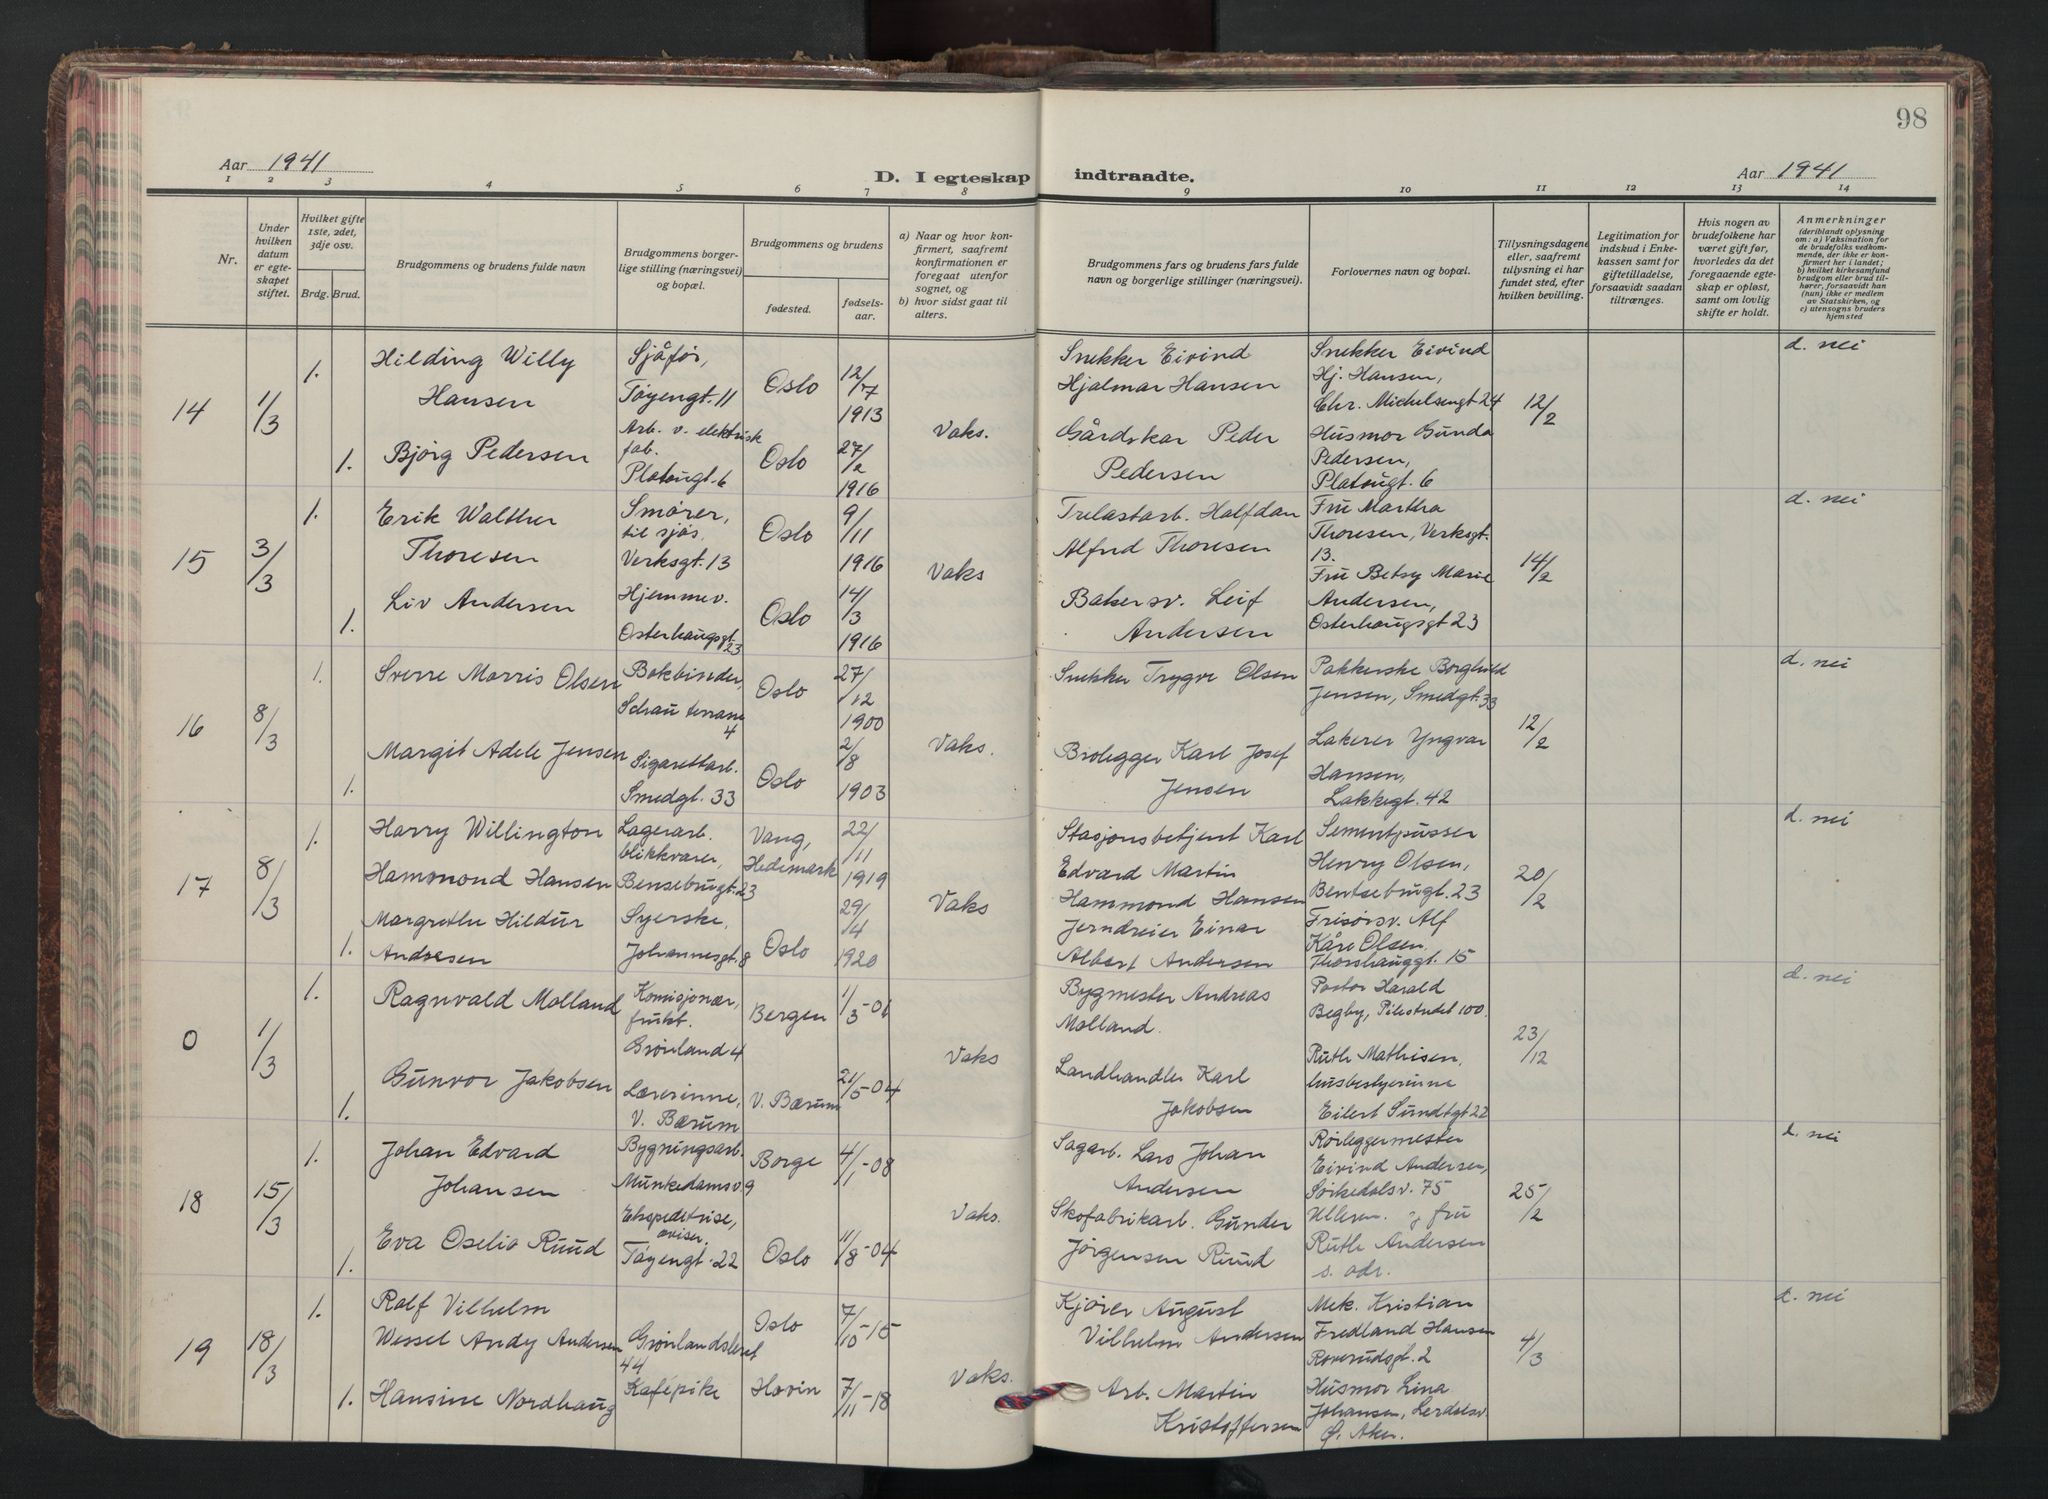 98
Aar 1941
D. I egteskap indtraadte.
Aar 1941
1 2 3 4 5 6 7 8 9 10 11 12 13 14
Nr.
Under hvilken datum er egteskapet stiftet.
Hvilket gifte 1ste, 2det, 3dje osv.
Brdg. Brud.
Brudgommens og brudens fulde navn
Brudgommens borgerlige stilling (næringsvei) og bopæl.
Brudgommens og brudens
fødested.
fødselsaar.
a) Naar og hvor konfirmert, saafremt konfirmationen er foregaat utenfor sognet, og
b) hvor sidst gaat til alters.
Brudgommens fars og brudens fars fulde navn og borgerlige stillinger (næringsvei).
Forlovernes navn og bopæl.
Tillysningsdagene eller, saafremt tillysning ei har fundet sted, efter hvilken bevilling.
Legitimation for indskud i Enkekassen samt for giftetilladelse, forsaavidt saadan tiltrænges.
Hvis nogen av brudefolkene har været gift før, hvorledes da det foregaaende egteskap er opløst, samt om lovlig skifte er holdt.
Anmerkninger
(deriblandt oplysning om: a) Vaksination for de brudefolks vedkommende, der ikke er konfirmert her i landet; b) hvilket kirkesamfund brudgom eller brud tilhører, forsaavidt han (hun) ikke er medlem av Statskirken, og c) utensogns bruders hjemsted
14
1/3
1.
Hilding Willy
Hansen
Sjåfør,
Tøyengt. 11
Oslo
12/7
1913
Snekker Eivind
Hjalmar Hansen
Snekker Eivind
Hj. Hansen,
Chr. Michelsengt 24
12/2
d. nei
1.
Bjørg Pedersen
Arb. v. elektrisk
fab.
Platougt. 6
Oslo
27/2
1916
Vaks.
Gårdskar Peder
Pedersen
Husmor Gunda
Pedersen,
Platougt. 6
15
3/3
1.
Erik Walther
Thoresen
Smører,
til sjøs.
Verksgt. 13
Oslo
9/11
1916
Vaks
Trelastarb. Halfdan
Alfred Thoresen
Fru Martha
Thoresen, Verksgt.
13.
14/2
d. nei
1.
Liv Andersen
Hjemmev.
Osterhaugsgt.
23
Oslo
14/3
1916
Bakersv. Leif
Andersen
Fru Betsy Marie
Andersen,
Osterhaugsgt 23
16
8/3
1.
Sverre Morris Olsen
Bokbinder,
Schau terrasse
4
Oslo
27/12
1900
Vaks.
Snekker Trygve Olsen
Pakkerske Borghild
Jensen, Smedgt. 33
12/2
d. nei
1.
Margit Adele Jensen
Sigarettarb.
Smedgt. 33
Oslo
2/8
1903
Brolegger Karl Josef
Jensen
Lakerer Yngvar
Hansen,
Lakkegt. 42
17
8/3
1.
Harry Willington
Hammond Hansen
Lagerarb.
blikkvarer,
Bensebrugt. 23
Vang,
Hedemark
22/11
1919
Vaks
Stasjonsbetjent Karl
Edvard Martin
Hammond Hansen
Sementpusser
Henry Olsen,
Bentsebrugt. 23
20/2
d. nei
1.
Margrethe Hildur
Andresen
Syerske,
Johannesgt. 8
Oslo
29/4
1920
Jerndreier Einar
Albert Andersen
Frisørsv. Alf
Kåre Olsen.
Thorshauggt. 15
0
1/3
1.
Ragnvald Molland
Komisjonær,
frukt.
Grønland 4
Bergen
1/3-01
Vaks
Bygmester Andreas
Molland.
Pastor Harald
Begby, Pilestredet 100.
23/12
d. nei
1.
Gunvor Jakobsen
Lærerinne,
V. Bærum
V. Bærum
21/5-04
Landhandler Karl
Jakobsen
Ruth Mathisen,
husbestyrerinne
Eilert Sundtgt 22
18
15/3
1.
Johan Edvard
Johansen
Bygningsarb.
Munkedamsv. 9
Borge
4/1-08
Vaks.
Sagarb. Lars Johan
Andersen
Rørleggermester
Eivind Andersen,
Sørkedalsv. 75
Ullern. og fru
25/2
d. nei
1.
Eva Oselio Ruud
Ekspeditrise,
aviser.
Tøyengt. 22
Oslo
11/8-04
Skofabrikarb. Gunder
Jørgensen Ruud
Ruth Andersen
s. adr.
19
18/3
1.
Rolf Vilhelm
Wessel Andy Andersen
Grønlandsleret
44
Oslo
7/10-15
Vaks.
Kjører August
Vilhelm Andersen
Mek. Kristian
Fredland Hansen
Roverudsgt. 2
4/3
d. nei
1.
Hansine Nordhaug
Kafépike
Hovin
7/11-18
Arb. Martin
Kristoffersen
Husmor Lina
Johansen, Lerdalsv.
Ø. Aker.